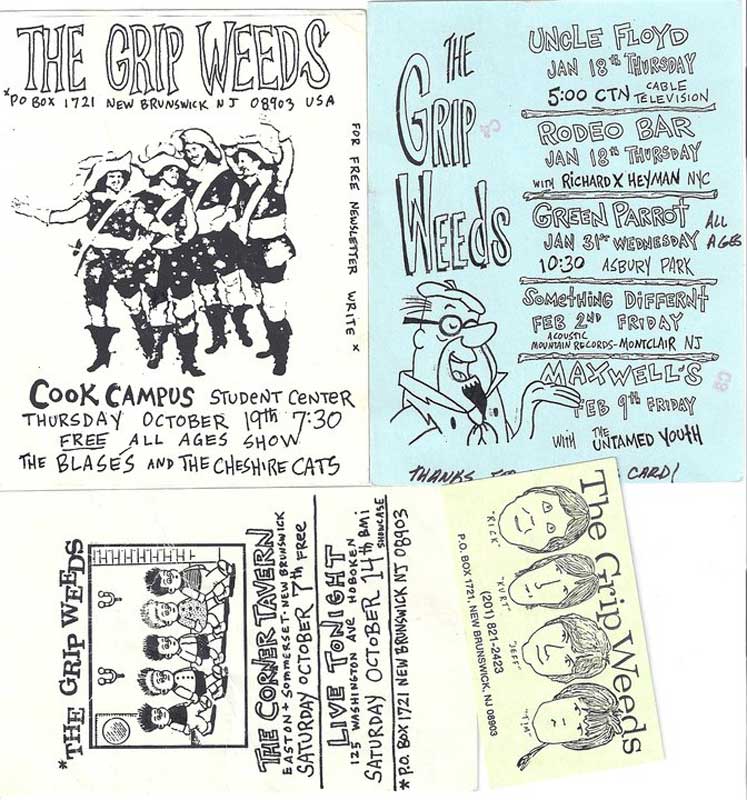 THE GRIP WEEDS
*PO BOX 1721 NEW BRUNSWICK NJ 08903 USA
FOR FREE NEWSLETTER WRITE *
COOK CAMPUS STUDENT CENTER
THURSDAY OCTOBER 19th 7:30
FREE ALL AGES SHOW
THE BLASÉS AND THE CHESHIRE CATS
THE
GRIP
WEEDS
UNCLE FLOYD
JAN 18th THURSDAY
5:00 CTN CABLE TELEVISION
RODEO BAR
JAN 18th THURSDAY
WITH RICHARD X HEYMAN NYC
GREEN PARROT ALL AGES
JAN 31st WEDNESDAY
10:30 ASBURY PARK
SOMETHING DIFFERNT
FEB 2ND FRIDAY
ACOUSTIC
MOUNTAIN RECORDS-MONTCLAIR NJ
MAXWELL'S
FEB 9th FRIDAY
WITH THE UNTAMED YOUTH
THANKS CARD!
*THE GRIP WEEDS
THE CORNER TAVERN
EASTON + SOMMERSET-NEW BRUNSWICK
SATURDAY OCTOBER 7th FREE
LIVE TONIGHT
125 WASHINGTON AVE HOBOKEN
SATURDAY OCTOBER 14th BMI SHOWCASE
*P.O. BOX 1721 NEW BRUNSWICK NJ 08903
The Grip Weeds
"RICK"
"KURT"
"JEFF"
"TIM"
(201) 821-2423
P.O. BOX 1721, NEW BRUNSWICK, NJ 08903